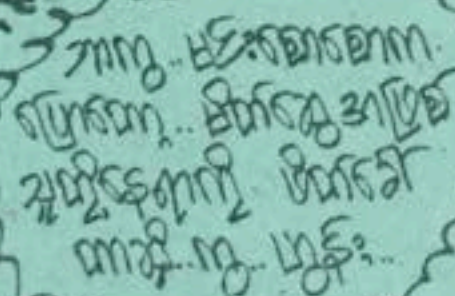 ဘာကွ..မင်းစောစောက
ပြောတော့..မိတ်ဆွေအဖြစ်
သူတို့နေရာကို ဖိတ်ခေါ်
တာဆို..ကွ..ဟွန်း..